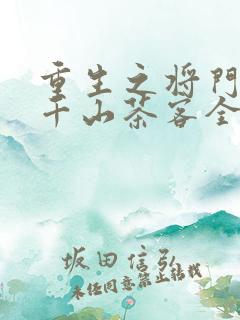 重生之将门
千山茶客全
坂田信弘
未经同意禁止转载